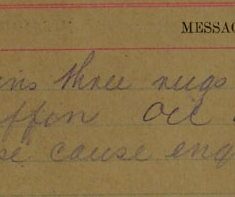 MESSAG
ins three rugs
ffin oil
se cause eng